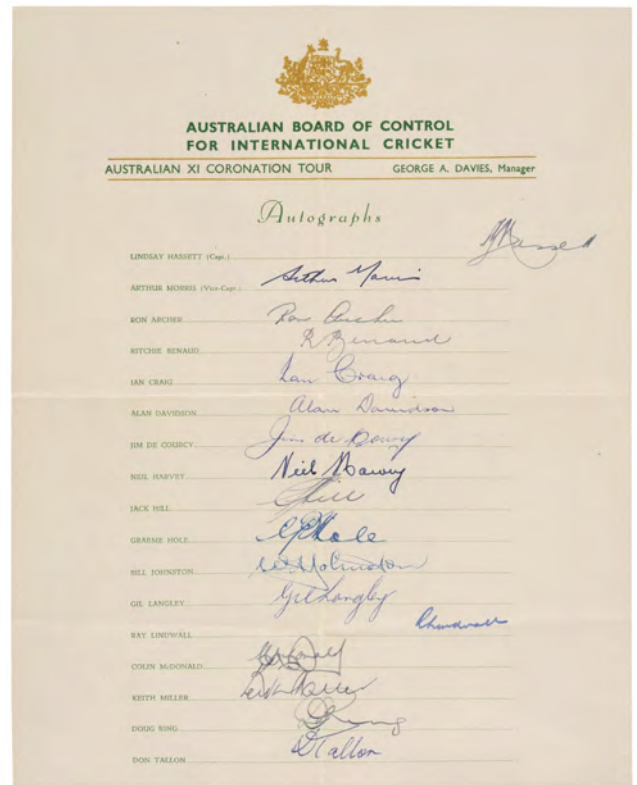 AUSTRALIAN BOARD OF CONTROL
FOR INTERNATIONAL CRICKET
AUSTRALIAN XI CORONATION TOUR GEORGE A. DAVIES, Manager
Autographs
LINDSAY HASSETT (Capt.)
ARTHUR MORRIS (Vice-Capt.) Arthur Morris
RON ARCHER Ron Archer
RITCHIE BENAUD R Benaud
IAN CRAIG Ian Craig
ALAN DAVIDSON Alan Davidson
JIM DE COURCY Jim de Courcy
NEIL HARVEY Neil Harvey
JACK HILL J Hill
GRAEME HOLE G Hole
BILL JOHNSTON W Johnston
GIL LANGLEY Gil Langley
RAY LINDWALL R Lindwall
COLIN McDONALD
KEITH MILLER Keith Miller
DOUG RING D Ring
DON TALLON D Tallon